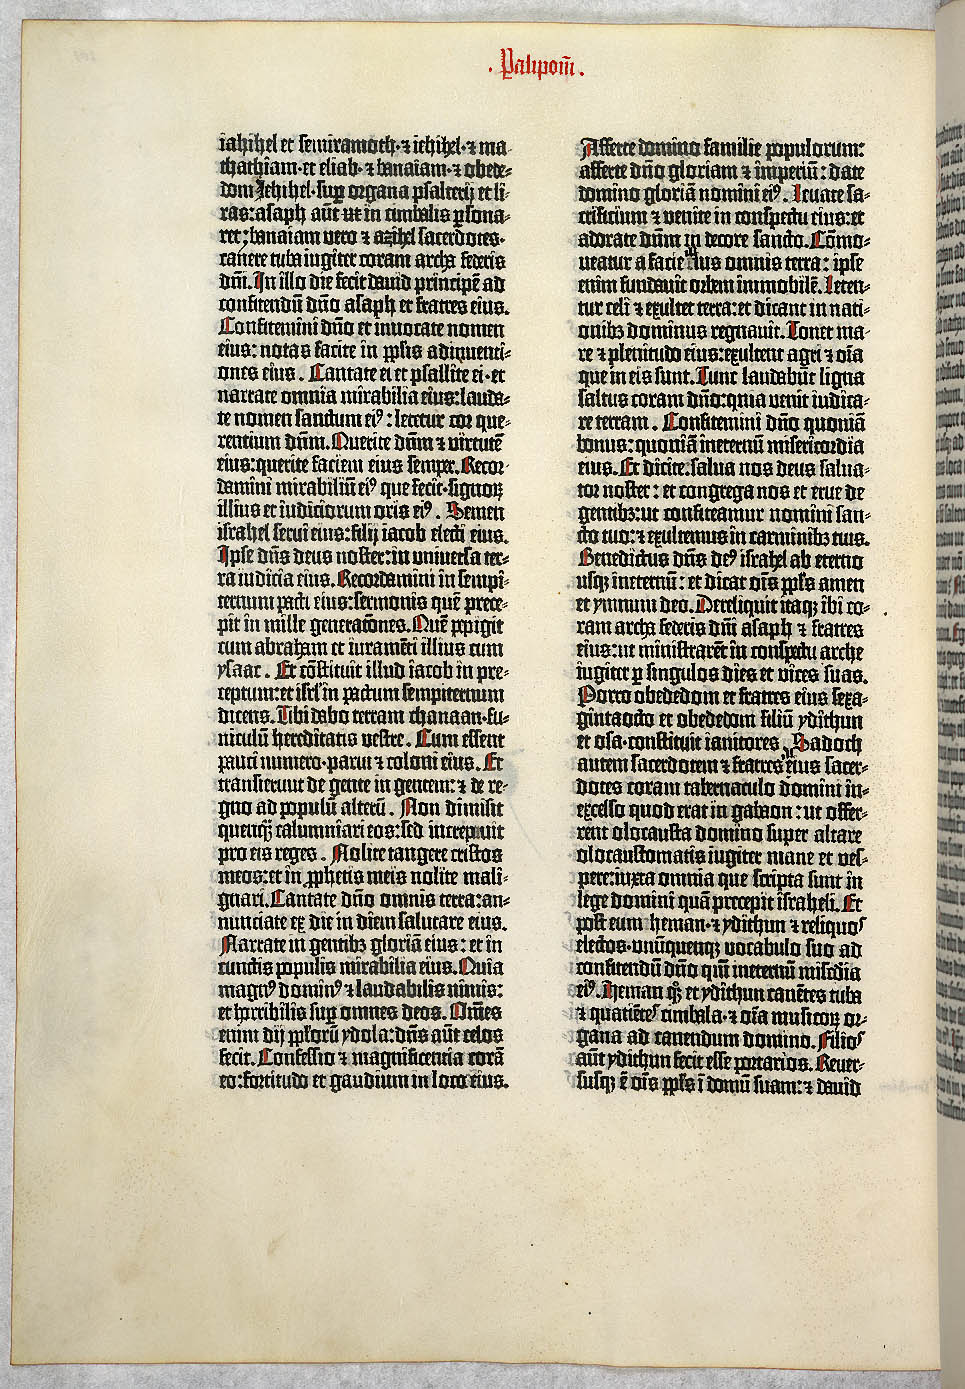 · Palipom̄ .
iahihel et semiramoth· ⁊ iehihel· ⁊ ma-
thathiam· et eliab· ⁊ banaiam· ⁊ obede-
dom Jehihel· sup̄ organa psalterij et li-
ras: asaph aūt ut in cimbalis p̲sona-
ret: banaiam vero ⁊ azihel sacerdotes·
canere tuba iugiter coram archa federis
dn̄i. In illo die fecit dauid principē ad
confitendū dn̄o asaph et fratres eius.
Confitemini dn̄o et inuocate nomen
eius: notas facite in pp̄lis adinuenti-
ones eius. Cantate ei et psallite ei· et
narrate omnia mirabilia eius: lauda-
te nomen sanctum eiꝰ: letetur cor que-
rentium dn̄m. Querite dn̄m ⁊ virtutē
eius: querite faciem eius semper. Recor-
damini mirabiliū eiꝰ que fecit· signoꝝ
illius et iudiciorum oris eiꝰ. Semen
israhel serui eius: filij iacob electi eius.
Ipse dn̄s deus noster: in uniuersa ter-
ra iudicia eius. Recordamini in sempi-
ternum pacti eius: sermonis quē prece-
pit in mille generatōnes. Quē pepigit
cum abraham et iuramēti illius cum
ysaac. Et cōstituit illud iacob in pre-
ceptum: et isrl̄ in pactum sempiternum
dicens. Tibi dabo terram chanaan· fu-
niculū hereditatis vestre. Cum essent
pauci numero· parui ⁊ coloni eius. Et
transierunt de gente in gentem: ⁊ de re-
gno ad populū alterū. Non dimisit
quenq̄ꝫ calumniari eos: sed increpauit
pro eis reges. Nolite tangere cristos
meos: et in pp̄hetis meis nolite mali-
gnari. Cantate dn̄o omnis terra: an-
nunciate ex die in diem salutare eius.
Narrate in gentibꝫ gloriā eius: et in
cunctis populis mirabilia eius. Quia
magnꝰ dominꝰ ⁊ laudabilis nimis:
et horribilis sup̄ omnes deos. Om̄es
enim dij pp̄lorū ydola: dn̄s aūt celos
fecit. Confessio ⁊ magnificentia corā
eo: fortitudo et gaudium in loco eius.
Afferte domino familie populorum:
afferte dn̄o gloriam ⁊ imperiū: date
domino gloriā nomini eiꝰ. Leuate sa-
crificium ⁊ venite in conspectu eius: et
adorate dn̄m in decore sancto. Cōmo-
ueatur a facie illius omnis terra: ipse
enim fundauit orbem immobilē. Leten-
tur celi ⁊ exultet terra: et dicant in nati-
onibꝫ dominus regnauit. Tonet ma-
re ⁊ plenitudo eius: exultent agri ⁊ oīa
que in eis sunt. Tunc laudabūt ligna
saltus coram dn̄o: quia venit iudica-
re terram. Confitemini dn̄o quoniā
bonus: quoniā ineternū misericordia
eius. Et dicite. salua nos deus salua-
tor noster: et congrega nos et erue de
gentibꝫ: ut confiteamur nomini san-
cto tuo: ⁊ exultemus in carminibꝫ tuis.
Benedictus dn̄s deꝰ israhel ab eterno
usqꝫ ineternū: et dicat oīs pp̄ls amen
et ymnum deo. Dereliquit itaqꝫ ibi co-
ram archa federis dn̄i asaph ⁊ fratres
eius: ut ministrarēt in conspectu arche
iugiter p̲ singulos dies et vices suas.
Porro obededom et fratres eius sexa-
gintaocto et obededom filiū ydithun
et osa· constituit ianitores. Sadoch
autem sacerdotem ⁊ fratres eius sacer-
dotes coram tabernaculo domini in-
excelso quod erat in gabaon: ut offer-
rent olocausta domino super altare
olocaustomatis iugiter mane et ves-
pere: iuxta omnia que scripta sunt in
lege domini quā precepit israheli. Et
post eum heman· ⁊ ydithun ⁊ reliquos
electos· unūquenqꝫ vocabulo suo ad
confitendū dn̄o qm̄ ineternū misc̄dia
eiꝰ. Heman q̄ꝫ et ydithun canētes tuba
⁊ quatiētes cimbala· ⁊ oīa musicoꝝ or-
gana ad canendum domino. Filios
aūt ydithun fecit esse portarios. Reuer-
susqꝫ ē oīs pp̄ls ī domū suam: ⁊ dauid